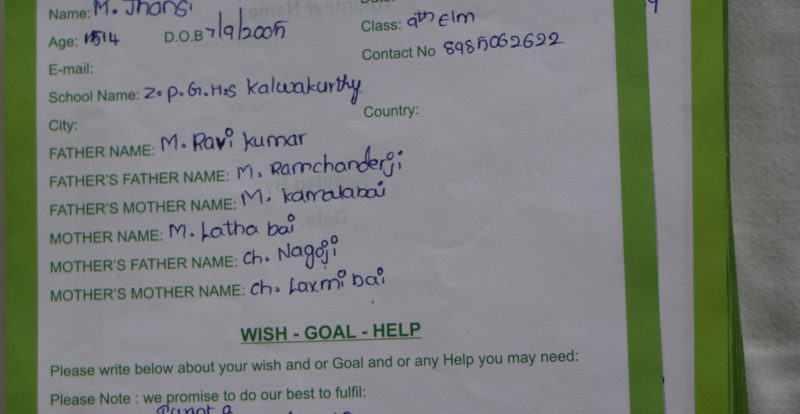 Name: M. Jhansi
Age: 14 D.O.B 7/9/2005 Class: 9th E/m
E-mail: Contact No 8985062622
School Name: Z.p.G.H.s kalwakurthy
City: Country:
FATHER NAME: M. Ravi kumar
FATHER'S FATHER NAME: M. Ramchanderji
FATHER'S MOTHER NAME: M. kamalabai
MOTHER NAME: M. Latha bai
MOTHER'S FATHER NAME: Ch. Nagoji
MOTHER'S MOTHER NAME: Ch. Laxmi bai
WISH - GOAL - HELP
Please write below about your wish and or Goal and or any Help you may need:
Please Note : we promise to do our best to fulfil: